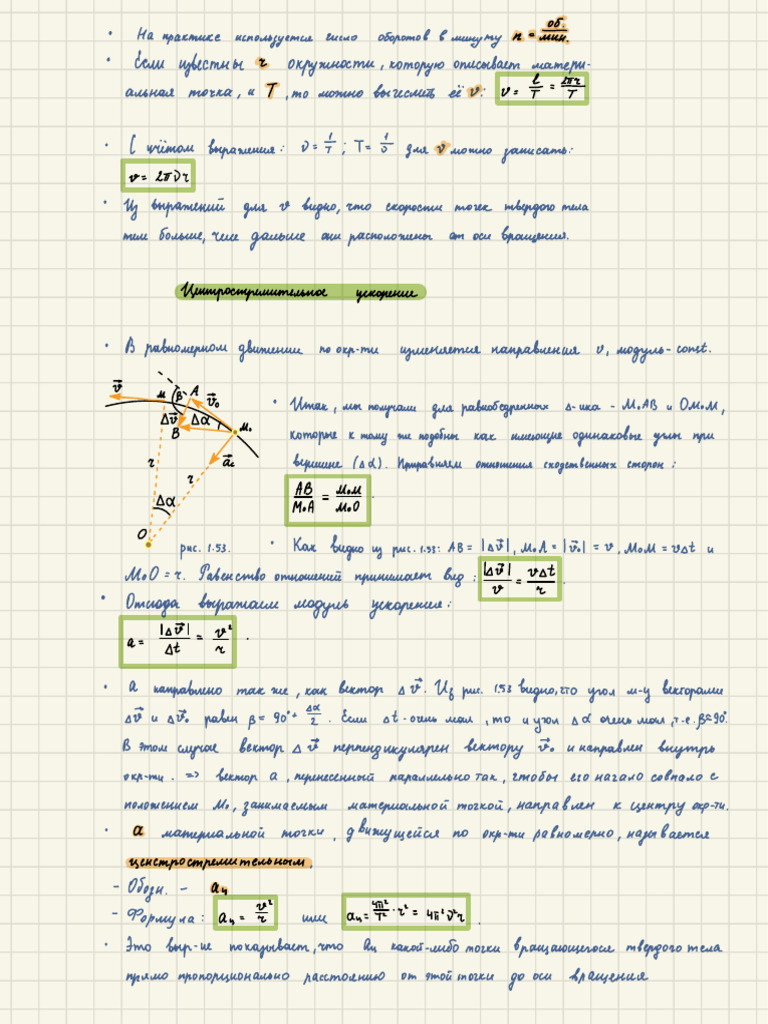 • На практике используется число оборотов в минуту n = об./мин.
• Если известны r окружности, которую описывает матери-
альная точка, и T, то можно вычислить её v: v = l/T = 2πr/T
• С учётом выражения: ν = 1/T ; T = 1/ν для v можно записать:
v = 2πνr
• Из выражений для v видно, что скорости точек твердого тела
тем больше, чем дальше они расположены от оси вращения.
Центростремительное ускорение
• В равномерном движении по окр-ти изменяется направления v, модуль - const.
v⃗ M β A v⃗₀
Δv⃗ Δα B M₀
r r a⃗c
Δα
O
рис. 1.53.
• Итак, мы получили для равнобедренных Δ-ика - M₀AB и OM₀M,
которые к тому же подобны как имеющие одинаковые углы при
вершине (Δα). Приравняем отношения сходственных сторон:
AB/M₀A = M₀M/M₀O .
• Как видно из рис. 1.53: AB = |Δv⃗|, M₀A = |v⃗₀| = v, M₀M = vΔt и
M₀O = r. Равенство отношений принимает вид: |Δv⃗|/v = vΔt/r .
• Отсюда выражаем модуль ускорения:
a = |Δv⃗|/Δt = v²/r .
• a направлено так же, как вектор Δv⃗. Из рис. 1.53 видно, что угол м-у векторами
Δv⃗ и Δv⃗₀ равен β = 90° + Δα/2. Если Δt - очень мал, то и угол Δα очень мал, т.е. β≈90°.
В этом случае вектор Δv⃗ перпендикулярен вектору v⃗₀ и направлен внутрь
окр-ти. => вектор a, перенесенный параллельно так, чтобы его начало совпало с
положением M₀, занимаемым материальной точкой, направлен к центру окр-ти.
• a материальной точки, движущейся по окр-ти равномерно, называется
центростремительным.
- Обозн. - aц
- Формула: aц = v²/r или aц = 4π²/T² · r² = 4π²ν²r .
• Это выр-ие показывает, что aц какой-либо точки вращающегося твердого тела
прямо пропорционально расстоянию от этой точки до оси вращения